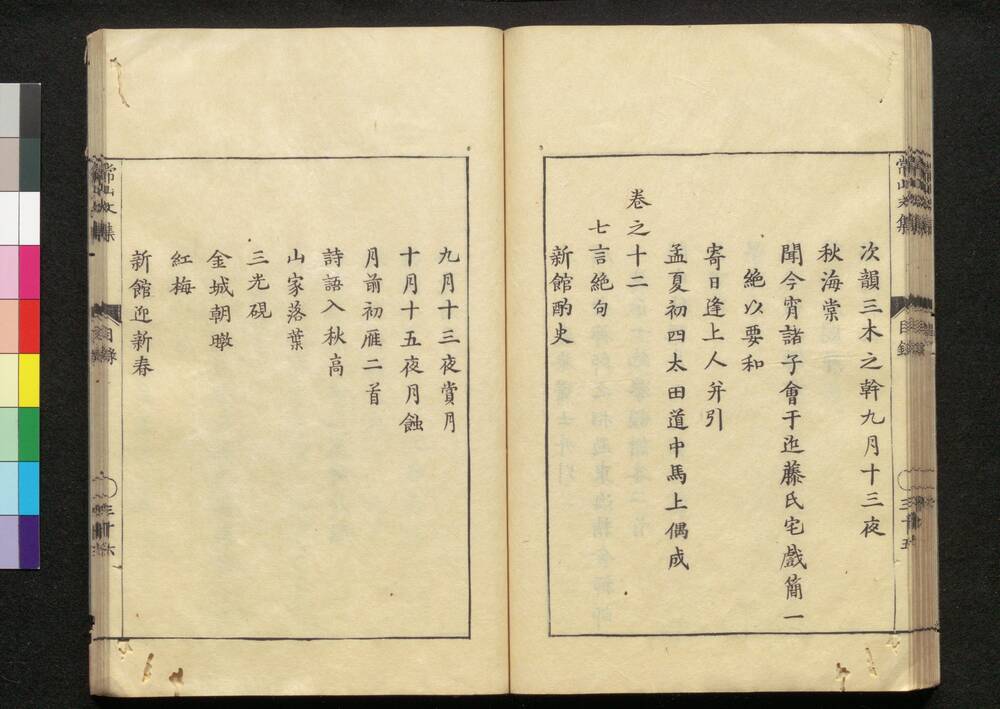 次韻三木之幹九月十三夜
秋海棠
聞今宵諸子會于近藤氏宅戲簡一
絶以要和
寄日逢上人并引
孟夏初四太田道中馬上偶成
卷之十二
七言絶句
新館酌史
九月十三夜賞月
十月十五夜月蝕
月前初雁二首
詩語入秋高
山家落葉
三光硯
金城朝暾
紅梅
新館迎新春
常山文集
目錄
三十五
常山文集
目錄
三十六